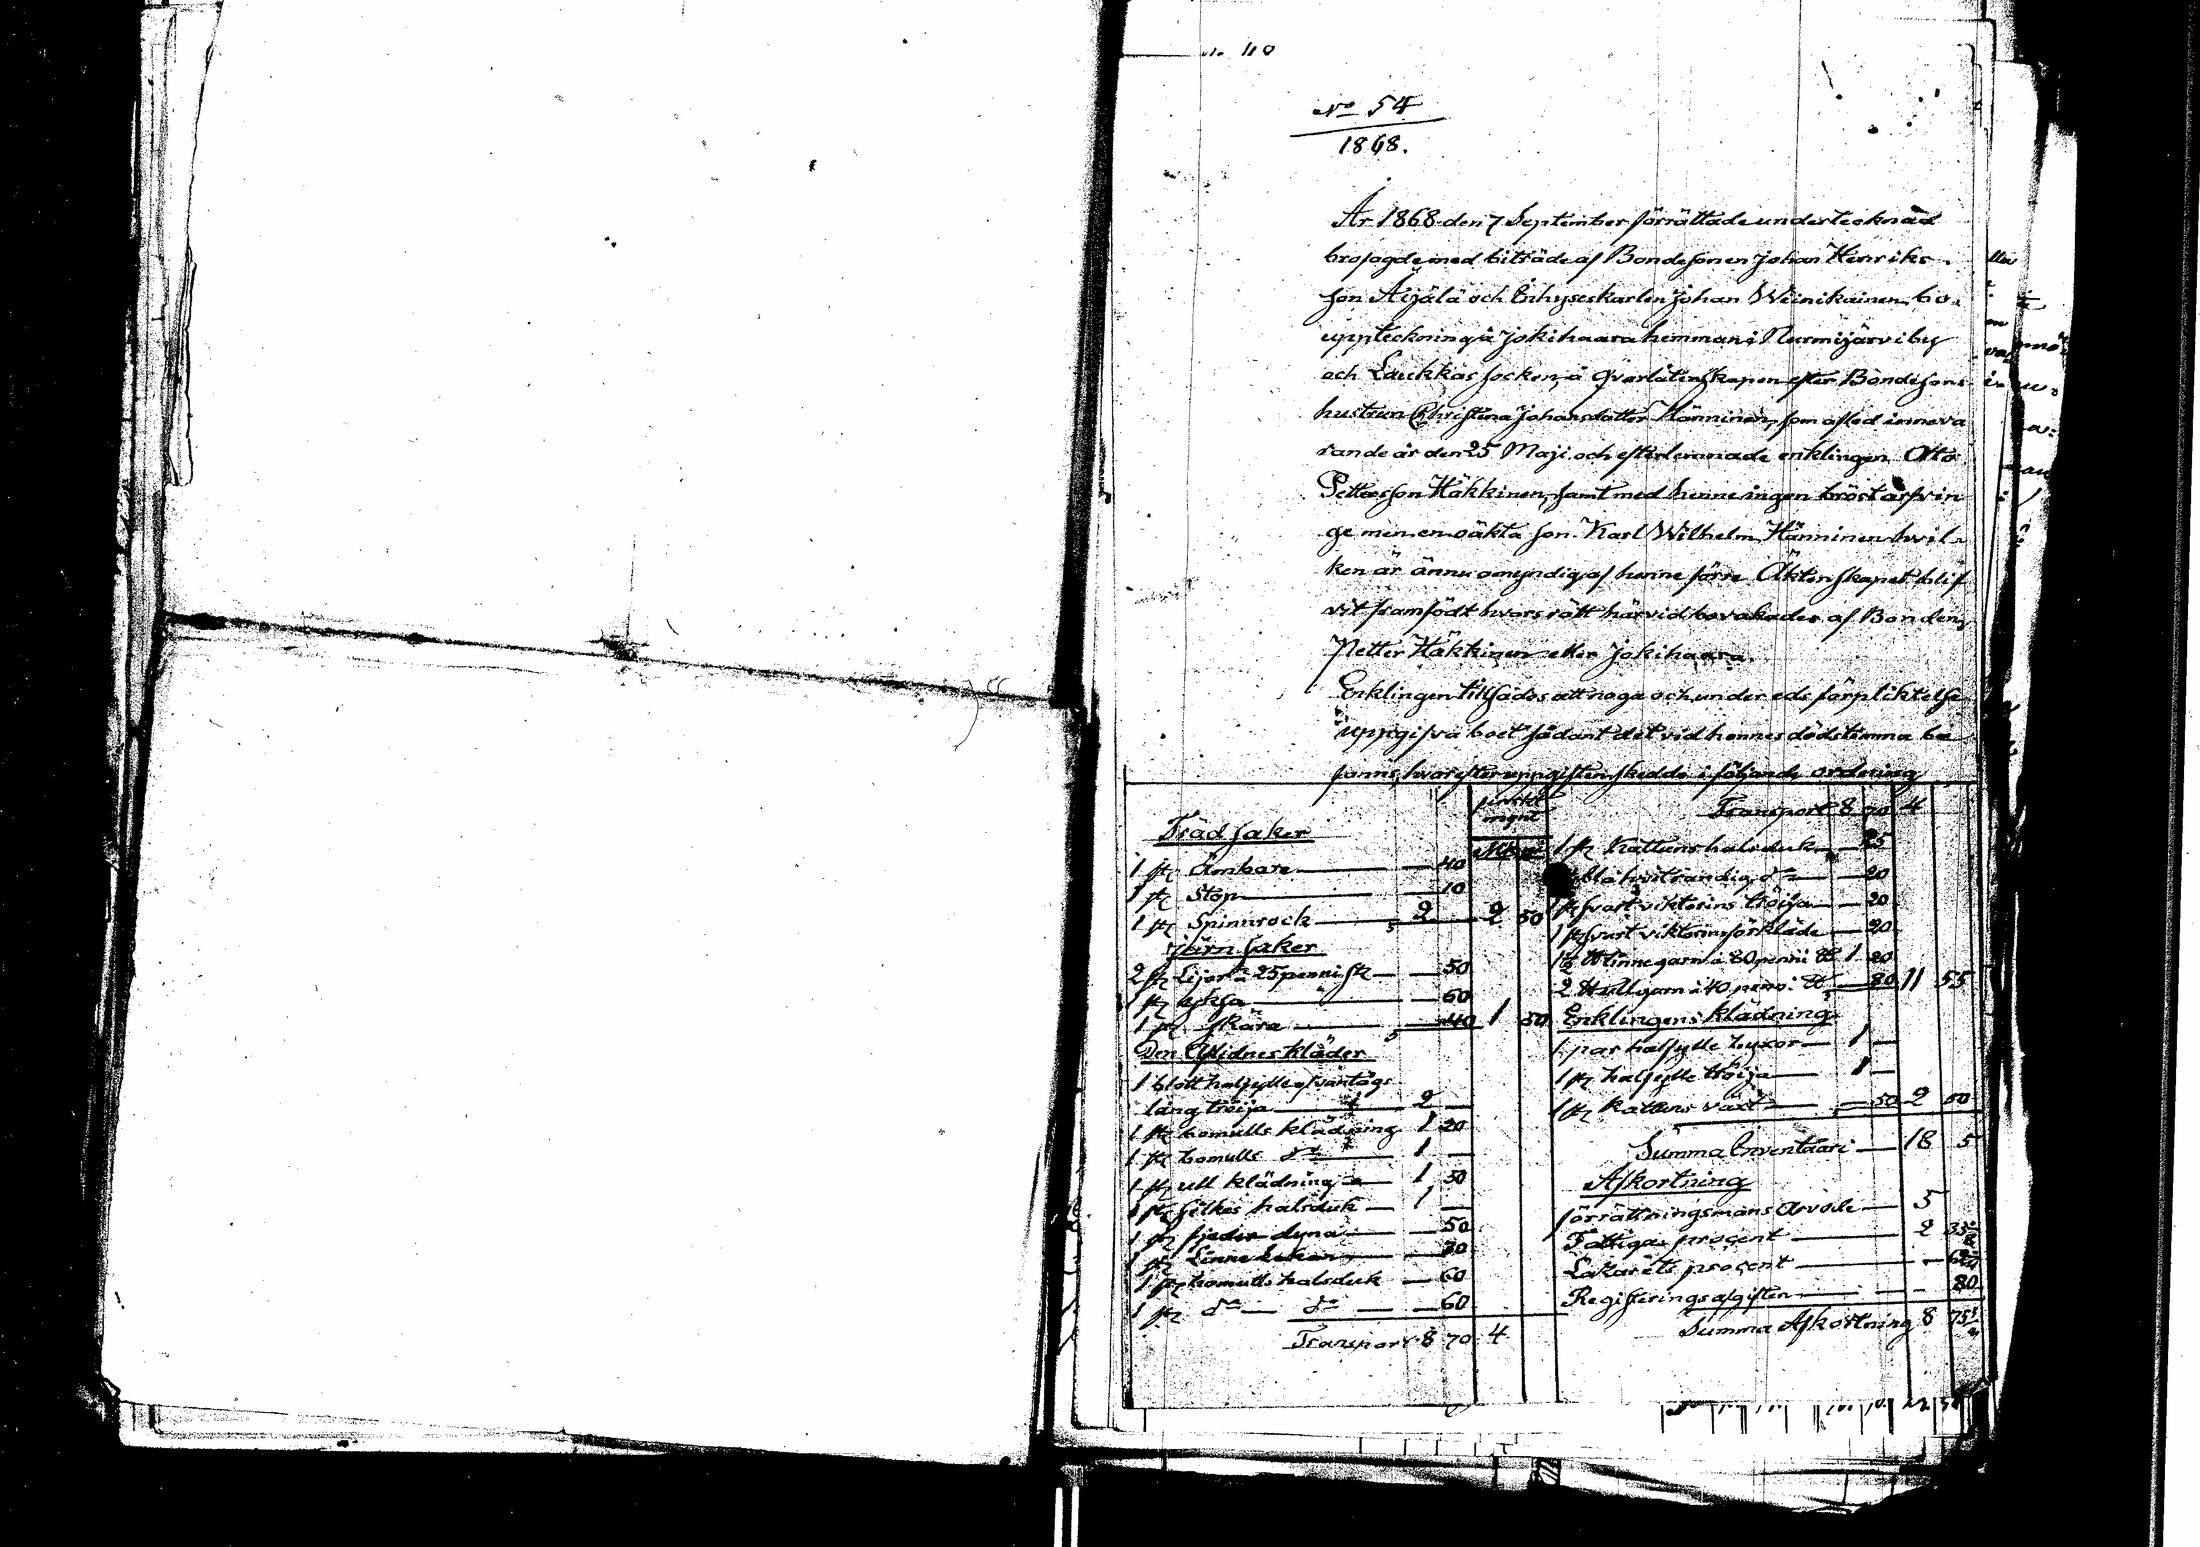 No 110
No 54
1868.
År 1868 den 7 September förrättade undertecknad
brofogde med biträde af Bondesonen Johan Henriks
son Äijälä och Inhyseskarlen Johan Weinikainen, bo
uppteckning å Jokihaara hemman i Nurmijärvi by
och Laukkas socken, å qvarlåtenskapen efter Bondesons
hustrun Christina Johansdotter Hänninen, som afled inneva
rande år den 25 Maji och efterlemnade enklingen Otto
Pettersson Häkkinen, samt med henne ingen bröst arfvin
ge men en oäkta son Karl Wilhelm Hänninen hvil
ken är ännu omyndig af henne förre Äktenskapet blif
vit framfödt hvars rätt härvid bevakades af Bonden
Petter Häkkinen eller Jokihaara.
Enklingen tillsades att noga och under eds förpliktelse
uppgifva boet sådant det vid hennes dödstimma be
fanns, hvarefter uppgiften skedde i följande ordning
Träd saker
1 st Ämbare 40
1 st Stop 10
1 st Spinnrock 2 2 50
Järn saker
2 st Lijor a 25 penni st 50
1 st 60
1 st skära 40 1 50
Den Aflidnes kläder
1 blott halfylle
lång tröija 2
1 st bomulls klädning 1 20
1 st bomulls do 1
1 st ull klädning 1 50
1 st silkes halsduk 1
1 st fjeder dyna 50
1 st Linne Lakan 30
1 st bomulls halsduk 60
1 st do do 60
Transport 8 70 4
Transport 8 70 4
1 st Kattuns halsduk 25
blå hvitrandig do 20
1 st svart viktorins tröija 20
1 st svart viktorins förkläde 20
1½ ℔ linnegarn a 80 penni ℔ 1 20
2 ℔ ullgarn a 40 penni ℔ 80 11 55
Enklingens klädning
1 par halfylle byxor 1
1 st halfylle tröija 1
1 st kattuns väst 50 2 50
Summa Inventari 18 5
Afkortning
förrättningsmans Arvode 5
Fattiga procent 2
Lakarets procent
Registerings afgiften 80
Summa Afkortning 8 75